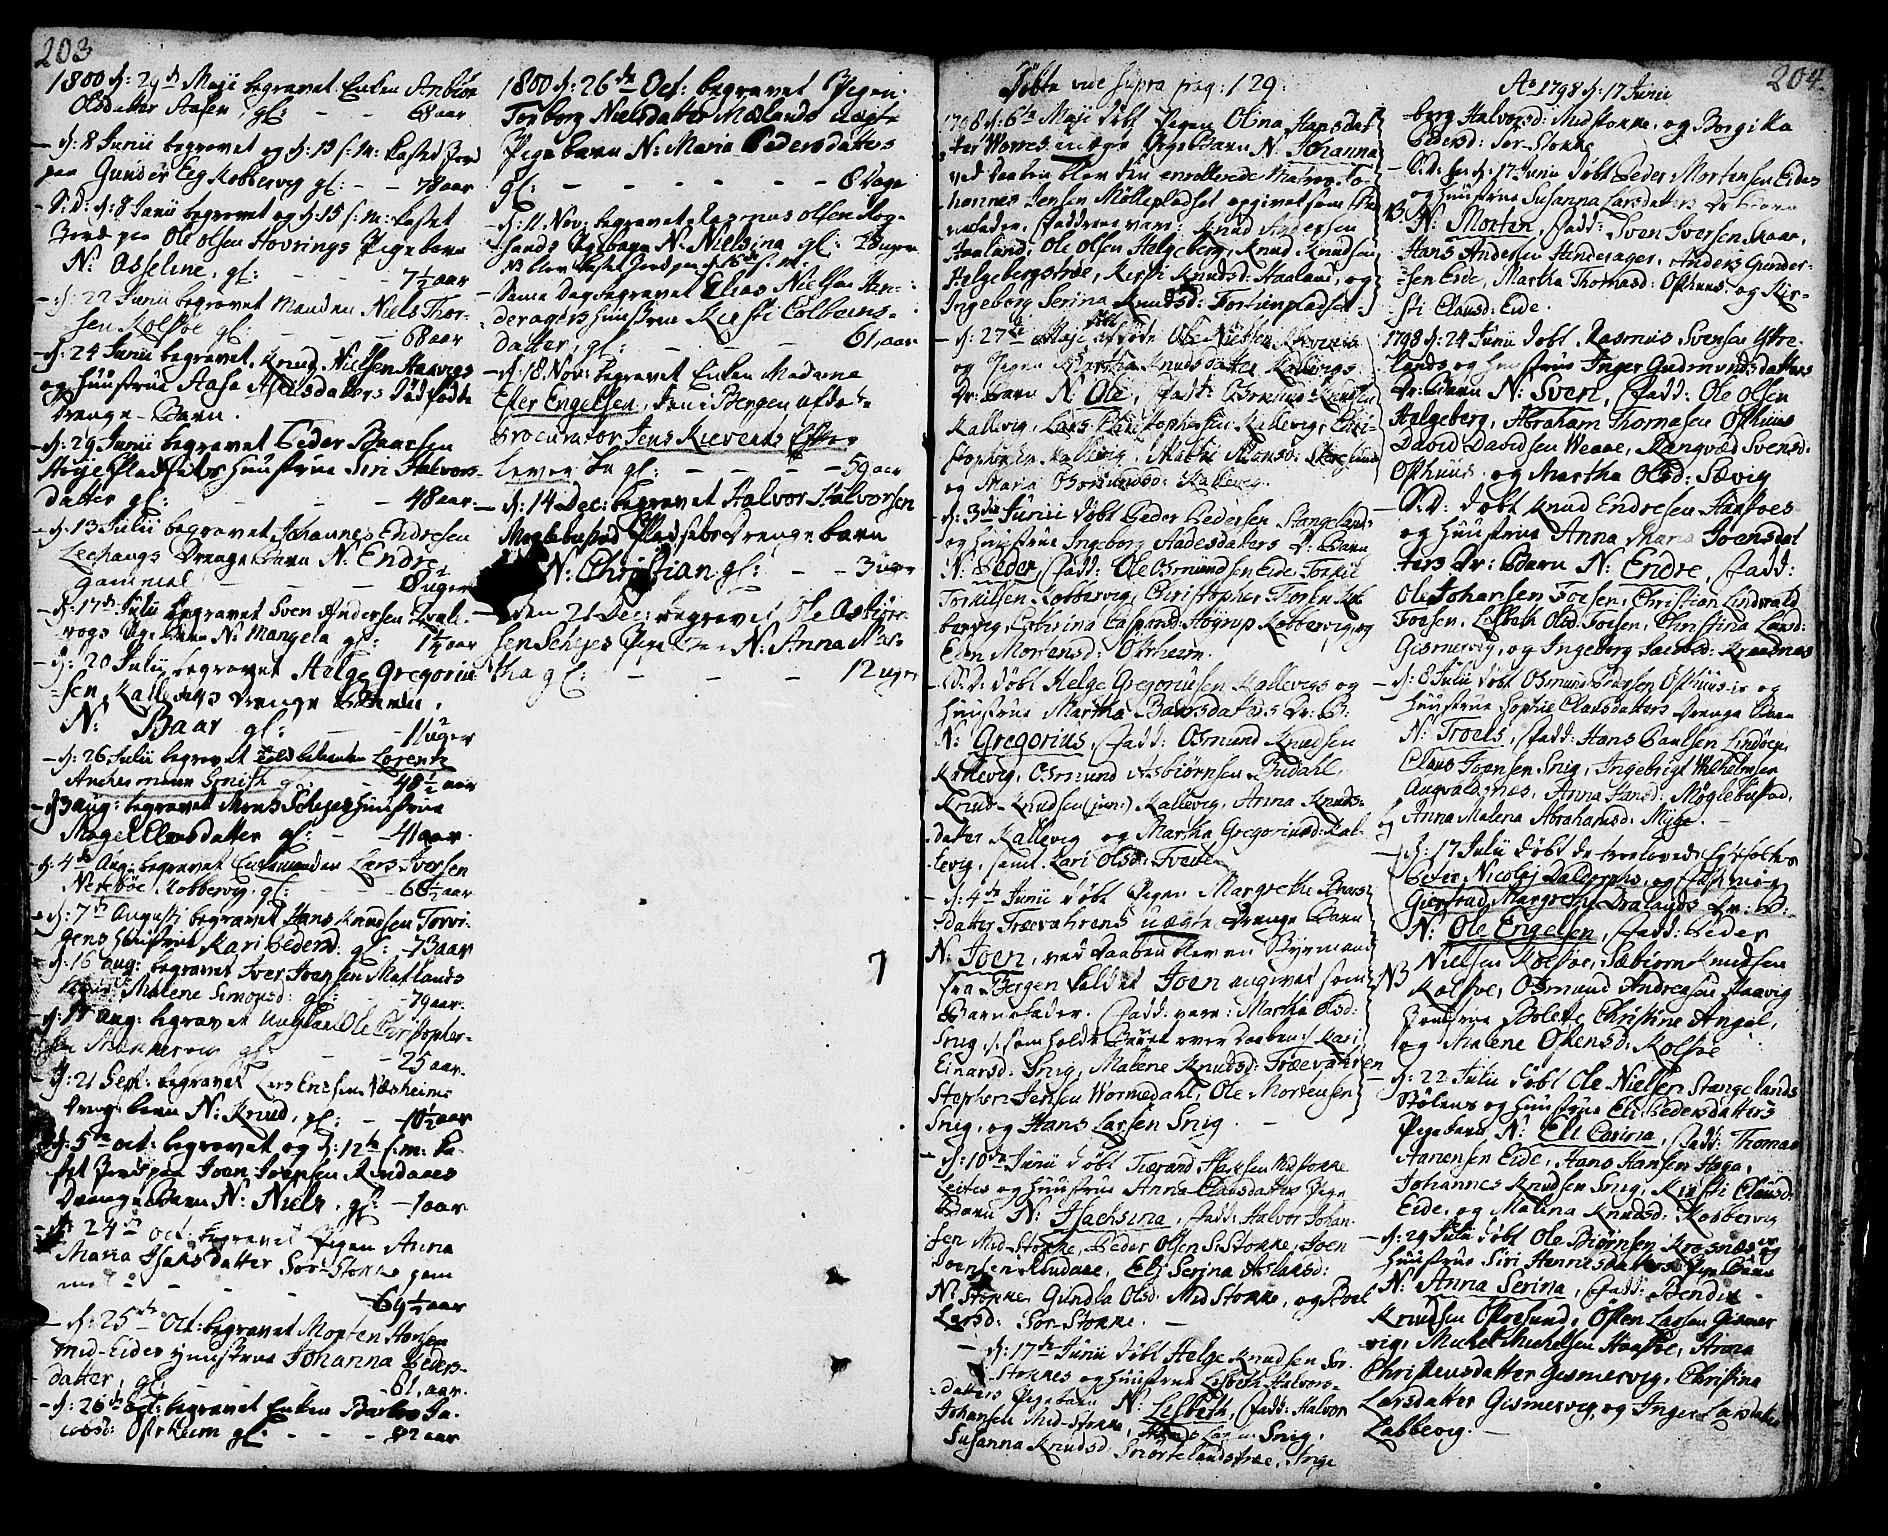 203
1800 d: 29de Maji begravet Enken Anbiör
Olsdatter Aasen, gl: - - 68 aar
- d: 8 Junii begravet og d: 15 s: m: kastet Jord
paa Gunder Eeg Kobbervig gl: - - 78 aar
- S: D: d: 8 Junii begravet og d: 15 s: m: kastet
Jord paa Ole Olsen Hovrings Pigebarn
N: Asseline, gl: - - 7½ aar
- d: 22 Junii begravet Manden Niels Thor-
sen Kolstöe gl: - - 68 aar
- d: 24 Junii begravet Knud Nielsen Haavigs
og Huustrue Aasa Axelsdatters Dödfödte
Drenge-Barn.
- d: 29 Junii begravet Peder Baarsen
Höyepladsets Huustrue Siri Halvors-
datter gl: - - 48 aar
- d: 13 Julii begravet Johannes Endresen
Lechangs Drenge Barn N: Endre
gammel - - 8 uger
- d: 17de Julii begravet Sven Andersen Kval-
vogs Pigebarn N: Mangela gl: 1½ aar
- d: 20 Julii begravet Helge Gregorius-
sen Kallevigs Drenge Barn,
N: Baar gl: - 11 uger
- d: 26 Julii begravet Toldbetienten Lorentz
Anchermann Smith gl: 48½ aar
- d: 3 Aug: begravet Mons Schejes Huustrue
Magel Elvesdatter gl: - - 41 aar.
- d: 4de Aug: begravet Enkemanden Lars Iversen
Nereböe Kobbervig gl: - - 66½ aar
- d: 7de Augusti begravet Hans Knudsen Torvi-
gens Huustrue Kari Pedersd: gl: - 73 aar
- d: 16 Aug: begravet Iver Iversen Matlands
Malene Simonsd: gl: - 79 aar.
- d: 17 Aug: begravet Ungkarl Ole Christopher-
sen gl: - - 25 aar.
- d: 21 Sept: begravet Lars Endsen Væsheims
Drengebarn N: Knud, gl: - 10½ aar
- d: 5te Oct: begravet og d: 12te s: m: ka-
stet Jord paa Joen Joensen Rindanes
Drenge Barn N: Niels, gl: - 1 aar
- d: 24de Oct: begravet Pigen Anna
Maria Isaksdatter Sör-Stokke gam
mel - - 69½ aar
- d: 25de Oct: begravet Morten Hansen
Mid-Eides Huustrue Johanna Peders-
datter, gl: - 61, aar.
- d: 26de Oct: begravet Enken Barbro Ja-
cobsd: Östrheim gl: - - - 82 aar
1800 d: 26de Oct: begravet Pigen
Torborg Nielsdatter Mælands uægte
Pige barn N: Maria Pedersdatters
gl: - - - 8 Dage
- d: 11 Nov: begravet Rasmus Olsen Rog-
sunds Pigebarn N: Nielsina gl: 18 uger
NB blev kastet Jord paa d: 16de s. m:
- Samme Dag begravet Elias Nielsen Hen-
deragers Huustrue Kirsti Colbens-
datter, gl: - - 61, aar
- d: 18 Nov: begravet Enken Madame
Elser Engelsen, den i Bergen afdöde
Procurator Jens Kievends Efter
lever ke gl: - - - 59 aar
- d: 14 Dec: begravet Halvor Halvorsen
Möglebustad Pladsets Drengebarn
N: Christian gl: - - 3 uger
- den 21 Dec: begravet Ole Asbjör-
sen Schejes Pige Barn N: Anna Mar-
tha gl: - - - 12 uger
7
204
Döbte vide supra pag: 129.
1798 d: 6te Maji döbt Pigen Olina Hansdat-
ter Vorres uægte Pige Barn N. Johanna
ved Daaben blev den enrollerede Matros Jo-
hannes Jensen Möllepladset opgivet som Bar
nefader, Fadderne vare: Knud Andersen
Haaland, Ole Olsen Helgeberg, Knud Knudsen
Helgebergstræ, Kirsti Knudsd: Haaland, og
Ingeborg Serina Knudsd: Fortunpladset.
- d: 27de Maji döbt afdöde Ole Nielsen
og Pigen Martha Knudsdatter Kallevigs
Dr: Barn N. Ole, Fadd: Osmund Knudsen
Kallevig, Lars Christophersen Kallevig, Chri-
stophersen Kallevig, Malki Monsd:
og Maria Osmundsd: Kallevig.
- d: 3die Junii döbt Peder Pedersen Stangelands
og Huustrue Ingeborg Aadesdatters Dr: Barn
N: Peder, Fadd: Ole Osmundsen Eide, Torkil
Torkilsen Kobbervig, Christopher Kob-
bervig, Caspard: Höyrup Kobbervig, og
Eden Mortensd: Östrheim.
- S: D: döbt Helge Gregoriusen Kallevigs og
Huustrue Martha Baarsdatters Dr: B:
N: Gregorius, Fadd: Osmund Knudsen
Kallevig, Osmund Asbiörnsen Rudahl,
Knud Knudsen (jun:) Kallevig, Anna Knuds-
datter Kallevig og Martha Gregoriusd: Kal-
levig, samt Kari Olsd: Tvede
- d: 4de Junii döbt Pigen Margrethe Baars-
datter Træevahrens uægte Drenge Barn
N: Joen, ved Daaben blev en Styrmand
fra Bergen kaldet Joen angivet som
Barnefader. Fadd: vare: Martha Olsd:
Snig /: som holdt Barnet over Daaben :/ Kari
Einarsd: Snig, Malene Knudsd: Træevahren
Stephen Jensen Wormedahl, Ole Mortensen
Snig, og Hans Larsen Snig.
- d: 10de Junii döbt Tiærand Isachsen Midstokke
Eites og Huustrue Anna Clausdatters Pige
Barn N: Isachsina, Fadd: Halvor Johan-
sen Mid-Stokke, Peder Olsen S: Stokke, Joen
Joensen Rindane, Eli Serina Aslaksd:
N: Stokke, Gundla Olsd: Mid Stokke, og Roel
Larsd: Sör-Stokke.
- d: 17de Junii döbt Helge Knudsen Sör-
Stokkes og Huustrue Lisbeth Halvors-
datters Pigebarn N: Lisbeth, Fadd: Halvor
Johansen Mid-Stokke, Larsen Snig,
Susanna Knudsd: Snörtelandstræe, Inge
Ao 1798 d: 17 Junii
berg Halvorsd: Midstokke, og Borgilla
Pedersd: Sör-Stokke
- S: D: d: 17 Junii döbt Peder Mortensen Eides
og Huustrue Susanna Larsdatters Dr: Barn
NB N: Morten, Fadd: Sven Iversen Skaar,
Hans Andersen Hinderager, Anders Gunder-
sen Eide, Martha Thomasd: Östhuus og Kir-
sti Clausd: Eide.
1798 d: 24 Junii döbt Rasmus Svensen Ytre-
lands og Huustrue Inger Gudmundsdatters
Dr: Barn N: Sven, Fadd: Ole Olsen
Helgeberg, Abraham Thomasen Östhuus
David Davidsen Weaae, Rangvæd Svensd:
Östhuus, og Martha Olsd: Sævig
- S: D: döbt Knud Endresen Haastöes
og Huustrue Anna Maria Joensdat
ters Dr: Barn N: Endre, Fadd:
Ole Johansen Foesen, Christian Lindvald
Foesen, Lisbeth Olsd: Foesen, Christina Larsd:
Gismervig, og Ingeborg Jacobsd: Kraadnæs
- d: 8 Julii döbt Osmund Pedersen Östhuus og
Huustrue Sophie Clausdatters Drenge Barn
N: Troels, Fadd: Hans Paulsen Lindöen,
Claus Joensen Snig, Ingebrigt Wilhelmsen
Augvaldsnæs, Anna Hansd: Möglebustad,
og Anna Malena Abrahamsd: Myge.
- d: 17 Julii döbt de trolovede Egtefolks
Peter Nicolaj Dalcorphs, og
Gierstad Margrethe Dralands Dr: B:
N: Ole Engelsen, Fadd: Peder
NB Nielsen Kolstöe, Sæbiörn Knudsen
Kolstöe, Osmund Andersen Haavig
Jomfrue Bolette Christine Angel,
og Malene Östensd: Kolstöe
- d: 22 Julii döbt Ole Nielsen Stangelands
Stölens og Huustrue Eli Pedersdatters
Pige barn N: Eli Carina, Fadd: Thomas
Aanensen Eide, Hans Hansen Haga,
Johannes Knudsen Snig, Kirsti Clausd:
Eide, og Malina Knudsd: Kobbervig
- d: 29 Julii döbt Ole Biörnsen Krosnæs og
Huustrue Siri Hennesdatters Pige Barn
N: Anna Serina, Fadd: Bendix
Knudsen Östvesund, Östen Larsen Gismer
vig, Michel Michelsen Haastöe, Anna
Christensdatter Gismervig, Christina
Larsdatter Gismervig, og Inger Larsdatter
Labbevig.